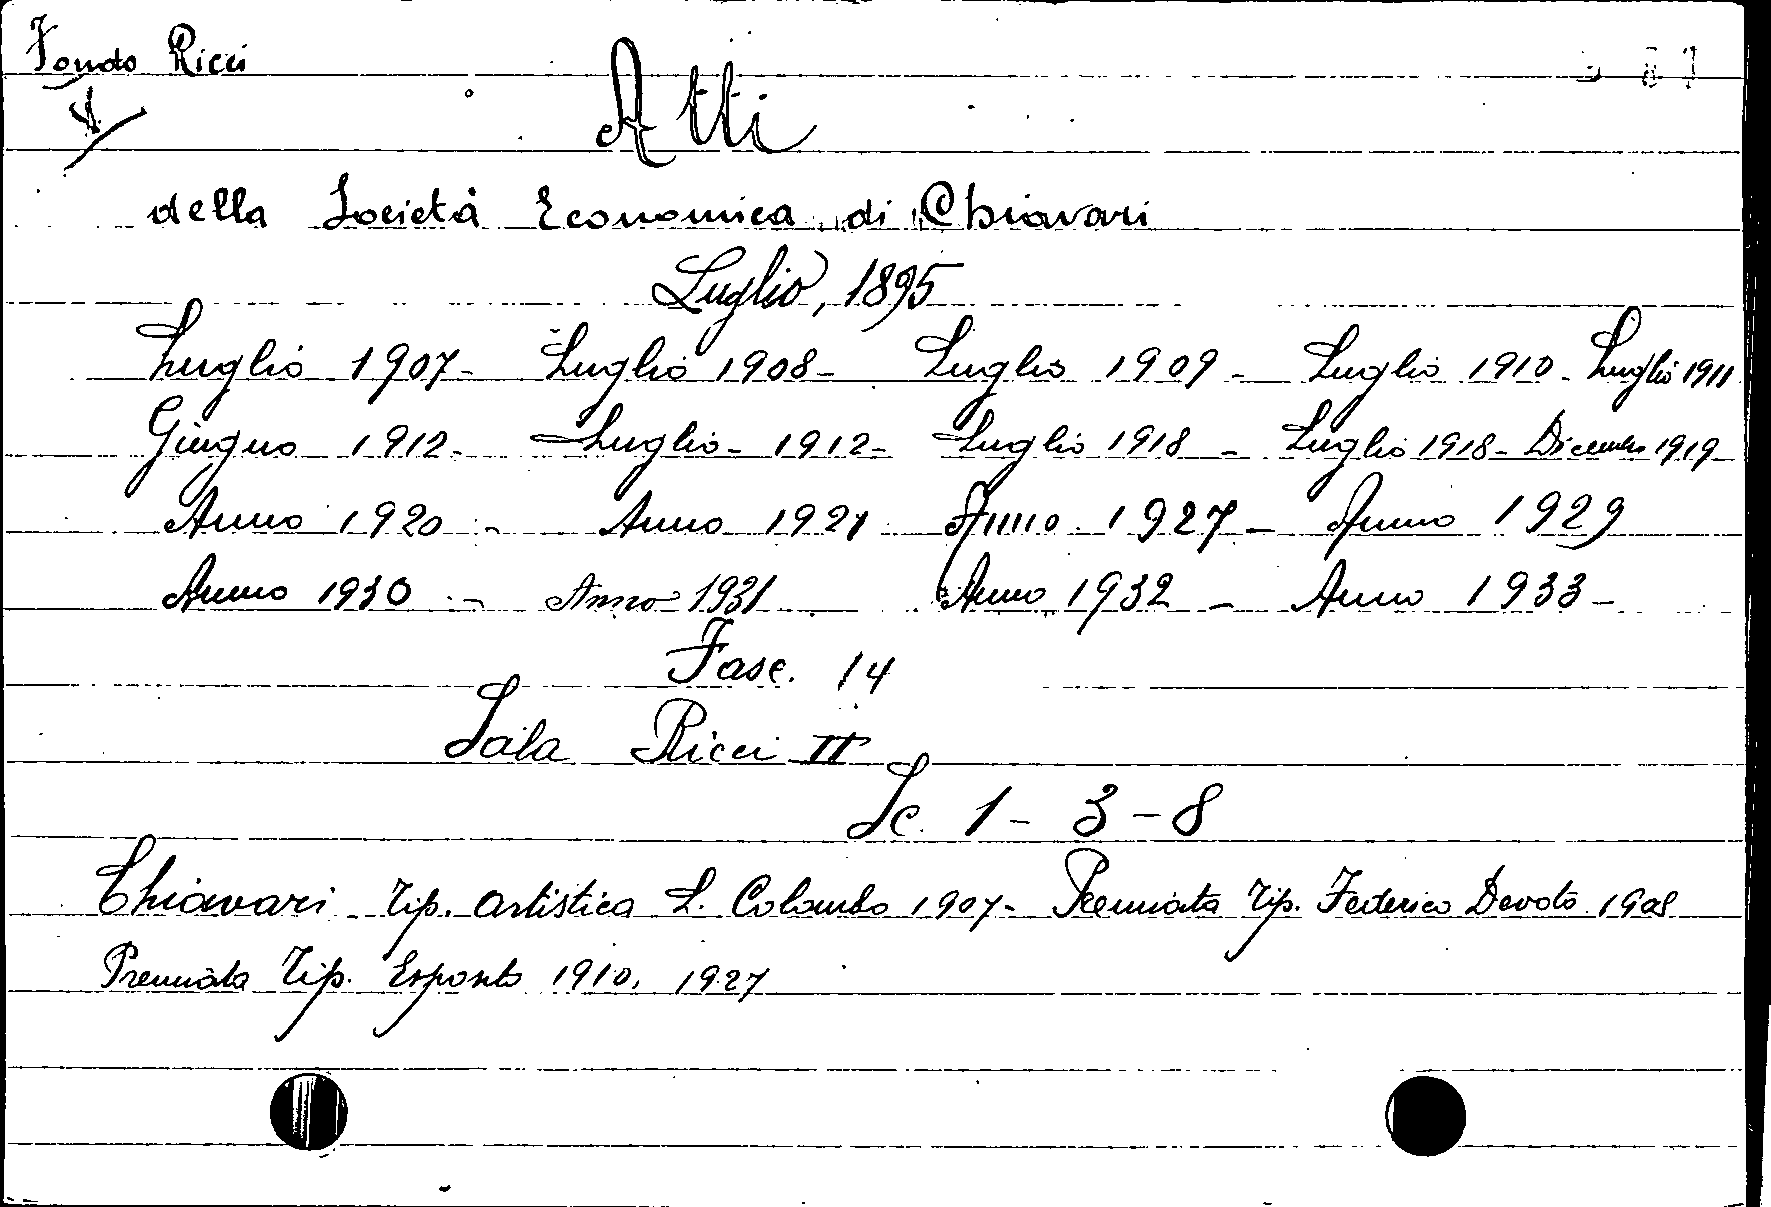 Fondo Ricci
Atti
della Società Economica di Chiavari
Luglio, 1895
Luglio 1907 - Luglio 1908 - Luglio 1909 - Luglio 1910 - Luglio 1911
Giugno 1912 - Luglio - 1912 - Luglio 1918 - Luglio 1918 - Dicembre 1919 -
Anno 1920 - Anno 1921 Anno 1927 - Anno 1929
Anno 1930 - Anno 1931 Anno 1932 - Anno 1933 -
Fasc. 14
Sala Ricci II
Sc. 1 - 3 - 8
Chiavari Tip. Artistica L. Colombo 1907 - Premiata Tip. Federico Devoto 1908
Premiata Tip. Esposito 1910, 1927